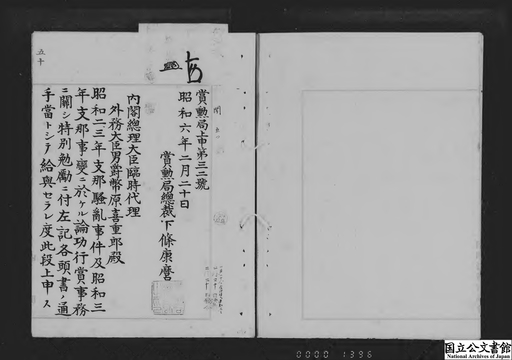 五十
賞勲局申第三二號
昭和六年二月二十日
賞勲局總裁下條康麿
内閣總理大臣臨時代理
外務大臣男爵幣原喜重郎殿
昭和二三年支那騒亂事件及昭和三
年支那事變ニ於ケル論功行賞事務
ニ關シ特別勉勵ニ付左記各頭書ノ通
手當トシテ給與セラレ度此段上申ス
0000 1396
国立公文書館
National Archives of Japan